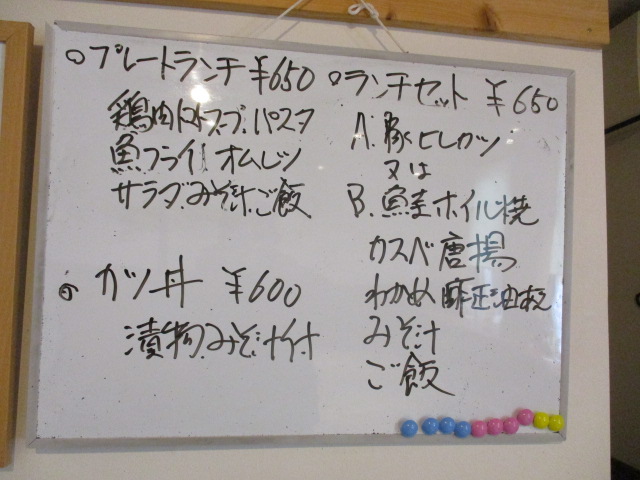 ○プレートランチ ¥650
鶏肉トマトスープ.パスタ
魚フライ オムレツ
サラダ.みそ汁.ご飯
○カツ丼 ¥600
漬物.みそ汁付
○ランチセット ¥650
A.豚ヒレカツ
又は
B.鮭ホイル焼
カスベ唐揚
わかめ
みそ汁
ご飯